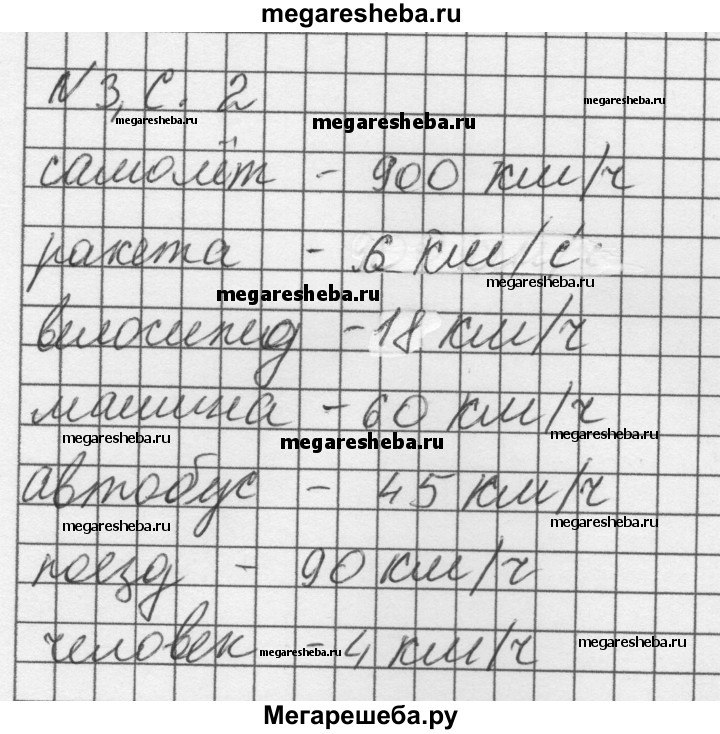 megaresheba.ru
N 3, С. 2
megaresheba.ru
megaresheba.ru
megaresheba.ru
самолёт - 900 км/ч
ракета - 6 км/с
megaresheba.ru
megaresheba.ru
велосипед - 18 км/ч
машина - 60 км/ч
megaresheba.ru
megaresheba.ru
megaresheba.ru
автобус - 45 км/ч
megaresheba.ru
megaresheba.ru
поезд - 90 км/ч
человек - 4 км/ч
megaresheba.ru
megaresheba.ru
Мегарешеба.ру